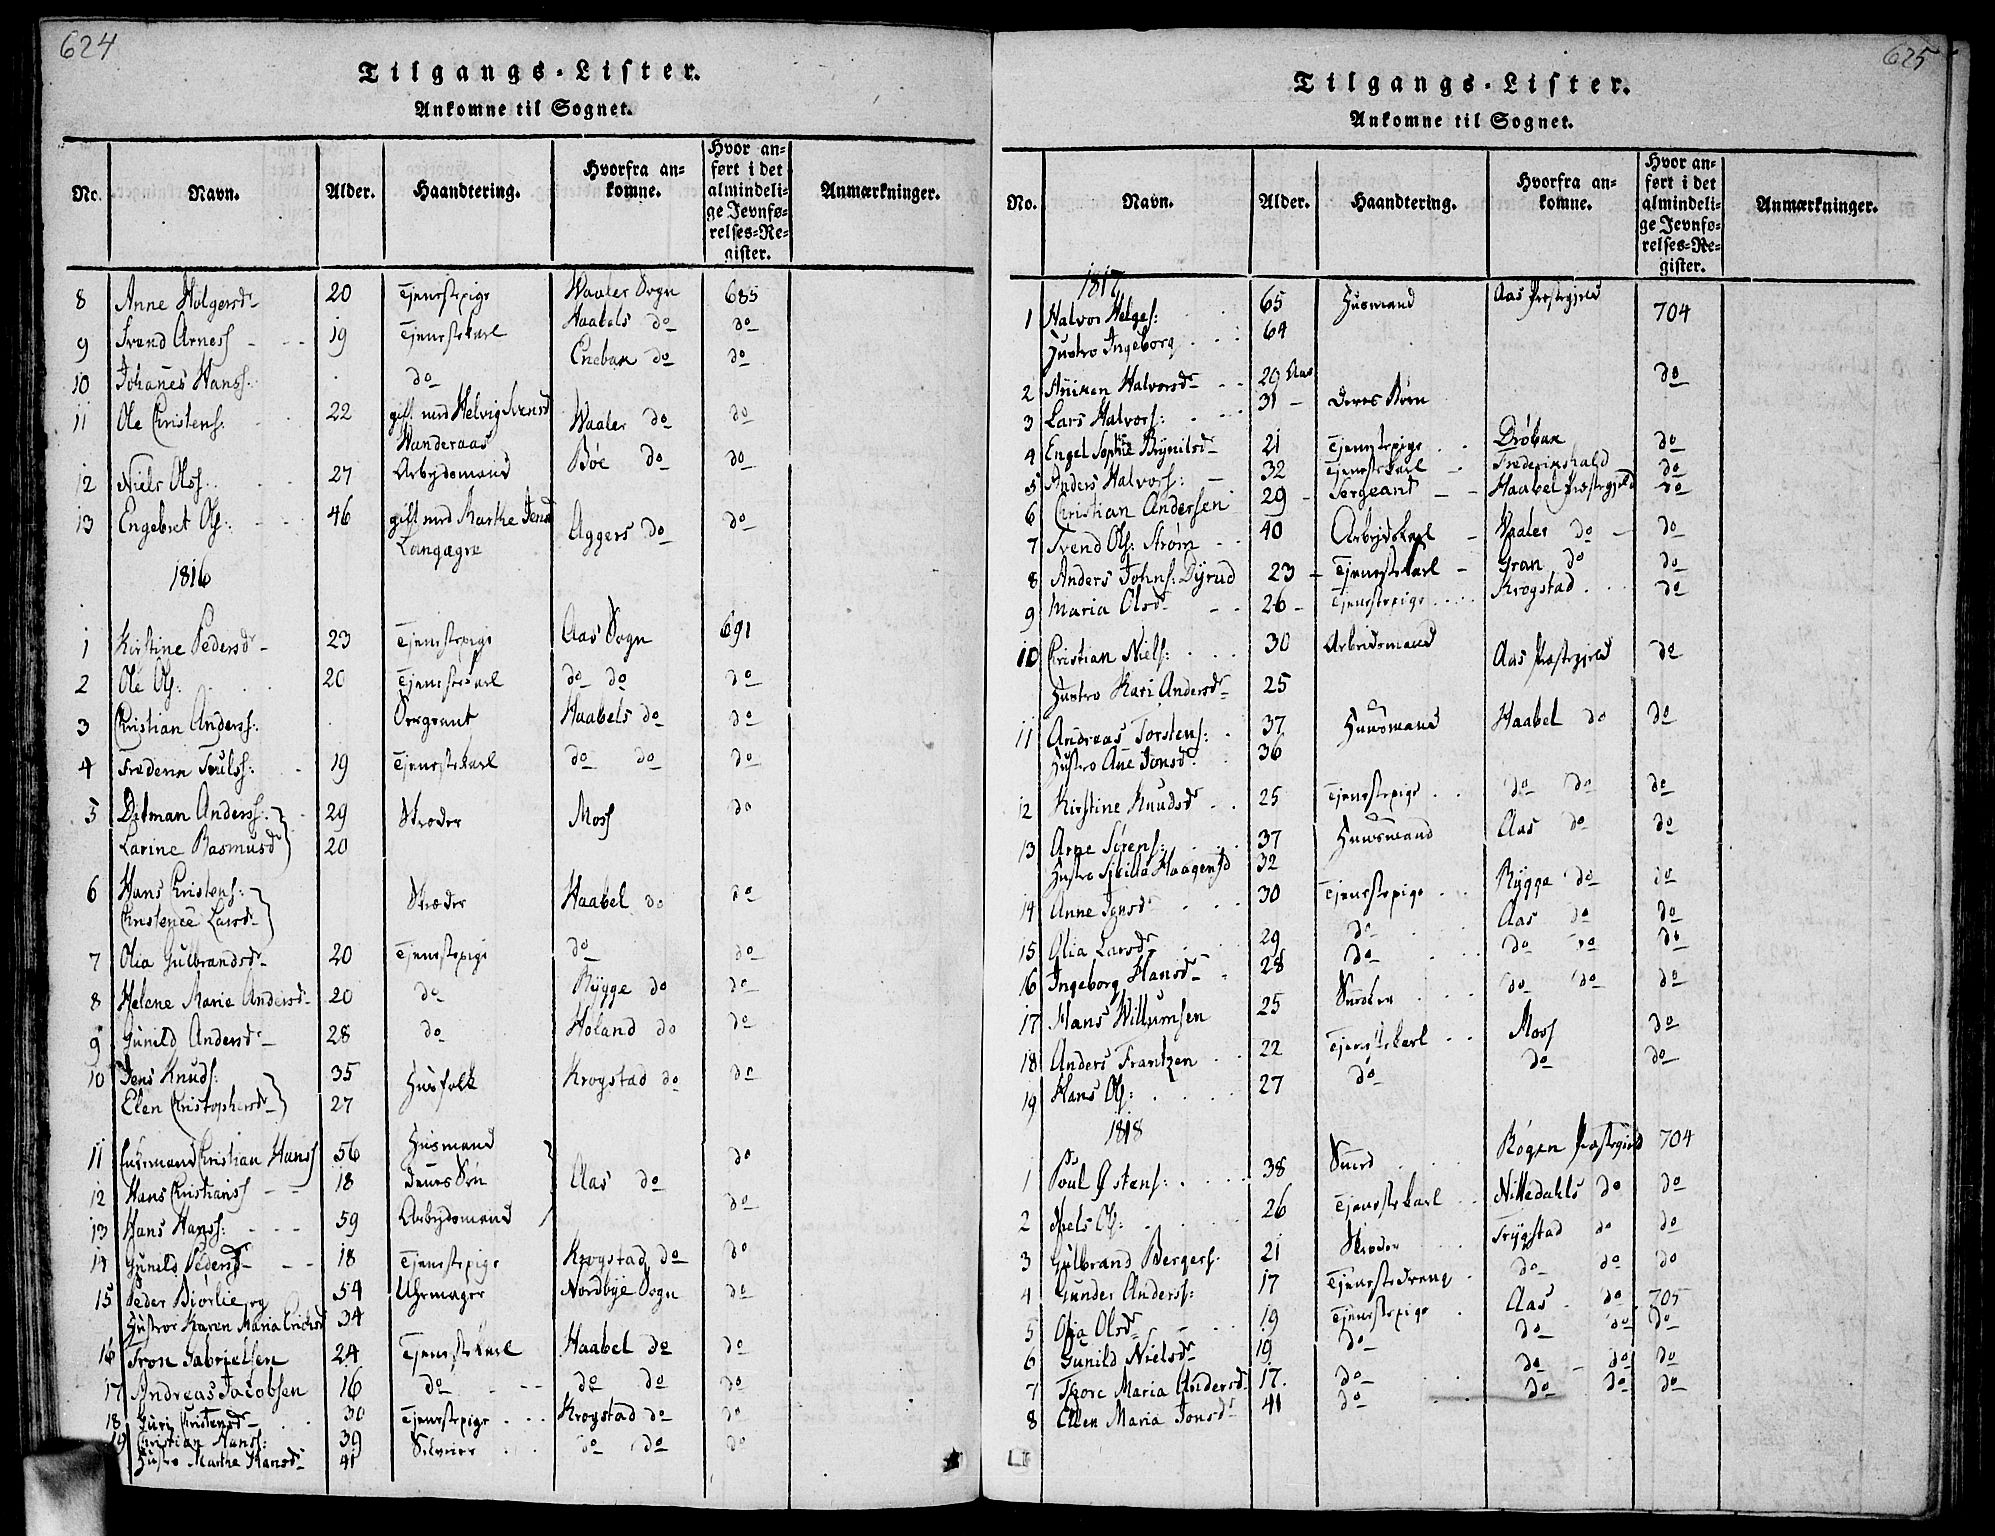 624
Tilgangs-Lister.
Ankomne til Sognet.
No. Navn. Alder. Haandtering. Hvorfra ankomne. Hvor anført i det almindelige Jevnførelses-Register. Anmærkninger.
8 Anne Holgersdr 20 Tjenestepige Waaler Sogn 685
9 Svend Arness 19 Tjenestekarl Haabels do do
10 Johanes Hanss. do Enebak do do
11 Ole Christens: 22 gift med Helvig Svensd Waaler do do
Wanderaas
12 Niels Olss. 27 Arbejdsmand Böe do do
13 Engebret Ols: 46 gift med Marthe Jensd Aggers do do
Langøgre
1816
1 Kirstine Pedersdr 23 Tjenestepige Aas Sogn 691
2 Ole Ols: 20 Tjenestekarl do do do
3 Christian Anderss: Sergeant Haabels do do
4 Frederik 19 Tjenestekarl do do do
5 Ditman Anderss. 29 Skræder Moss do
Larine Rasmusdr 20
6 Hans Kristens: Skræder Haabel do do
Larsdr
7 Olia Gulbrandsdr 20 Tjenestepige do do
8 Helene Marie Andersdr 20 do Rygge do do
9 Gunild Andersdr 28 do Höland do do
10 Jens Knuds: 35 Husfolk Krogstad do do
Elen Christophersdr 27
11 Enkemand Christian Hanss 56 Husmand do
12 Hans Christianss 18 Søn Aas do
13 Hans Hanss: 59 Arbejdsmand do
14 Gunild Pedersdr 18 Tjenestepige Krogstad do do
15 Peder Biørlie og 54 Uhrmager Nordbye Sogn do
Hustroe Karen Maria Erichsd 34
16 Tron Gabrielsen 24 Tjenestekarl Haabel do do
17 Andreas Jacobsen 16 do do do do
18 Guri Christensdr 30 Tjenestepige Krogstad do do
19 Christian Hanss: 39 do do do
Hustro Marthe Hansdr 41
625
Tilgangs-Lister.
Ankomne til Sognet.
No. Navn. Alder. Haandtering. Hvorfra ankomne. Hvor anført i det almindelige Jevnførelses-Register. Anmærkninger.
1817
1 Halvor Helges: 65 Husmand Aas Prestegjeld 704
Hustro Ingeborg 64
2 Aniken Halvorsdr 29 Aar do
3 Lars Halvors: 31 Deres Børn
4 Engel Sophie Brynilsdr 21 Tjenestepige Dröbak do
5 Anders Halvors: 32 Tjenestekarl Frederikshald do
6 Christian Andersen 29 Sergeant Haabel Prestegjeld do
7 Svend Ols: Strøm 40 Arbejdskarl Vaaler do do
8 Anders Johns: Dyrud 23 Tjenestekarl Gran do do
9 Maria Olsdr 26 Tjenestepige Krogstad do
10 Christian Niels: 30 Arbeidsmand Aas Prestegjeld do
Hustro Kari Andersdr 25
11 Andreas Torstens: 37 Huusmand Haabel do do
Hustro Ane Jonsd. 36
12 Kirstine Knudsdr 25 Tjenestepige do do do
13 Arne Sørens: 37 Huusmand Aas do do
Hustro Sibilla Haagensd 32
14 Anne Jonsdr 30 Tjenestepige Rygge do do
15 Olia Larsdr 29 do Aas do do
16 Ingeborg Hansdr 28 do do do do
17 Hans Willumsen 25 do do do
18 Anders Frantzen 22 Tjenestekarl Moss do
19 Hans Ols: 27 do do do
1818
1 Poul Østens: 38 Smed Røgen Prestegjeld 704
2 Niels Ols: 26 Tjenestekarl Nittedahls do do
3 Gulbrand Bergers. 21 Skræder Trygstad do do
4 Gunder Anderss: 17 Tjenestedreng do do do
5 Olia Olsdr 19 Tjenestepige Aas do 705
6 Gunild Nielsdr 19 do do do do
7 Thore Maria Andersd 17 do do do do
8 Ellen Maria Jonsdr 41 do do do do